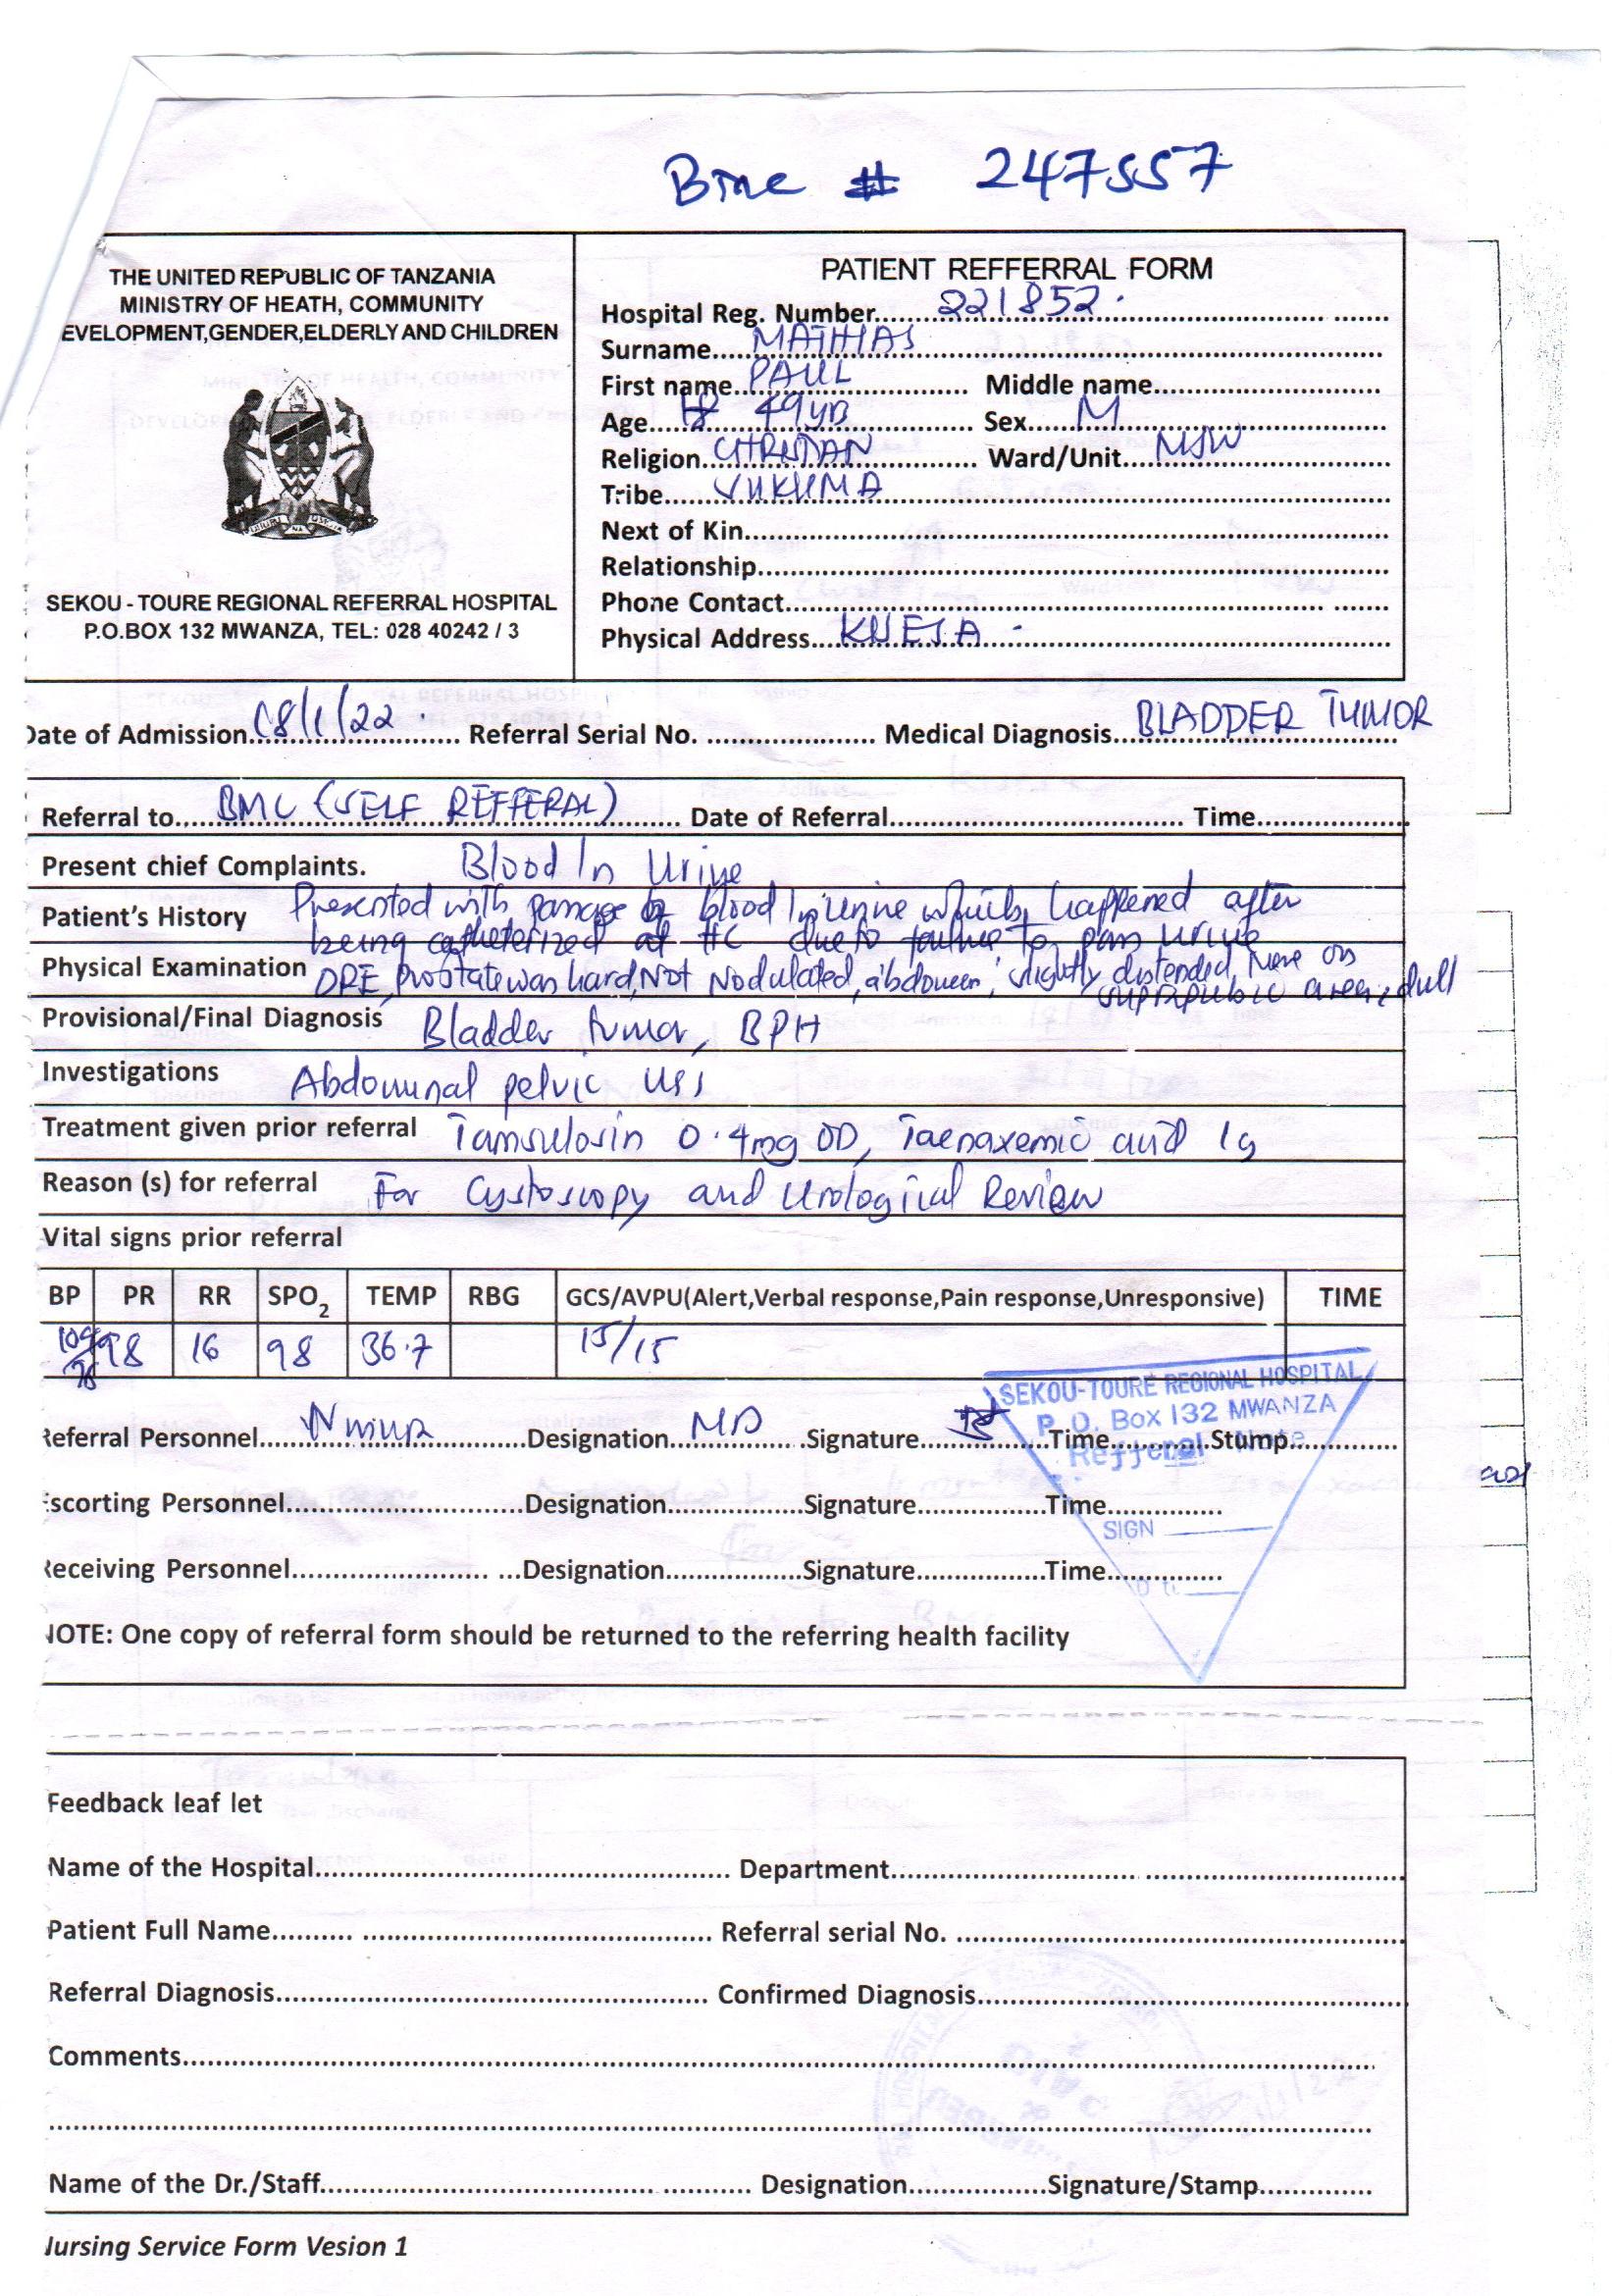 Bmc # 247557
THE UNITED REPUBLIC OF TANZANIA
MINISTRY OF HEATH, COMMUNITY
EVELOPMENT,GENDER,ELDERLY AND CHILDREN
SEKOU - TOURE REGIONAL REFERRAL HOSPITAL
P.O.BOX 132 MWANZA, TEL: 028 40242 / 3
PATIENT REFFERRAL FORM
Hospital Reg. Number 221852
Surname MATHIAS
First name PAUL Middle name
Age 49yrs Sex M
Religion CHRISTIAN Ward/Unit MSW
Tribe SUKUMA
Next of Kin
Relationship
Phone Contact
Physical Address
Date of Admission 18/1/22 Referral Serial No. Medical Diagnosis BLADDER TUMOR
Referral to BMC (SELF REFFERAL) Date of Referral Time
Present chief Complaints. Blood In Urine
Patient's History Presented with passage of blood In urine which happened after
being catheterized at HC due to failure to pass urine
Physical Examination DRE, Prostate was hard, Not Nodulated, abdomen; slightly distended, more on
suprapubic area, dull
Provisional/Final Diagnosis Bladder tumor, BPH
Investigations Abdominal pelvic USS
Treatment given prior referral Tamsulosin 0.4mg OD, Taenaxemic acid 1g
Reason (s) for referral For Cystoscopy and Urological Review
Vital signs prior referral
BP PR RR SPO2 TEMP RBG GCS/AVPU(Alert,Verbal response,Pain response,Unresponsive) TIME
98 16 98 36.7 15/15
SEKOU-TOURE REGIONAL HOSPITAL
P. O. Box 132 MWANZA
Refferal Note
SIGN
Referral Personnel Designation MD Signature Time Stump
Escorting Personnel Designation Signature Time
Receiving Personnel Designation Signature Time
NOTE: One copy of referral form should be returned to the referring health facility
Feedback leaf let
Name of the Hospital Department
Patient Full Name Referral serial No.
Referral Diagnosis Confirmed Diagnosis
Comments
Name of the Dr./Staff Designation Signature/Stamp
Nursing Service Form Vesion 1